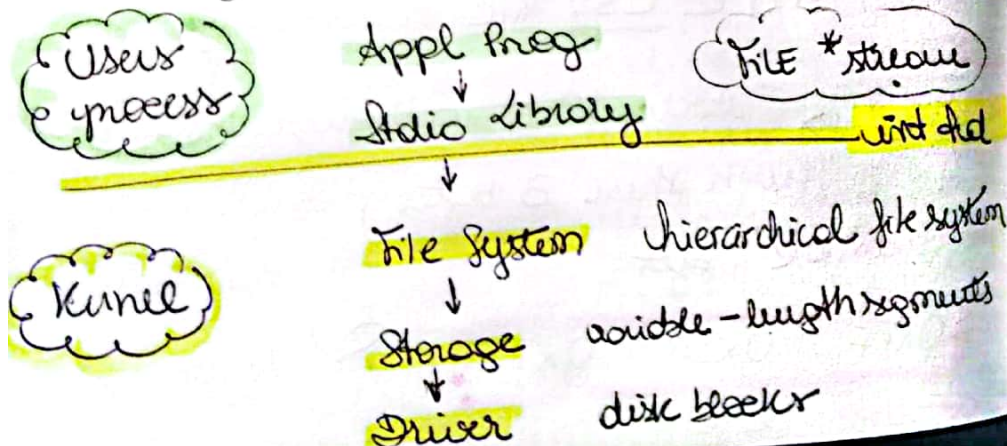 Users
process
Appl Prog
FILE *stream
Stdio Library
int fd
Kernel
File System
hierarchical file system
Storage
variable-length segments
Driver
disk blocks